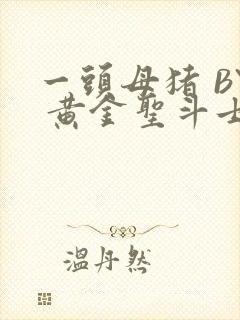 一頭母猪 BY
黄金聖斗士
温丹然